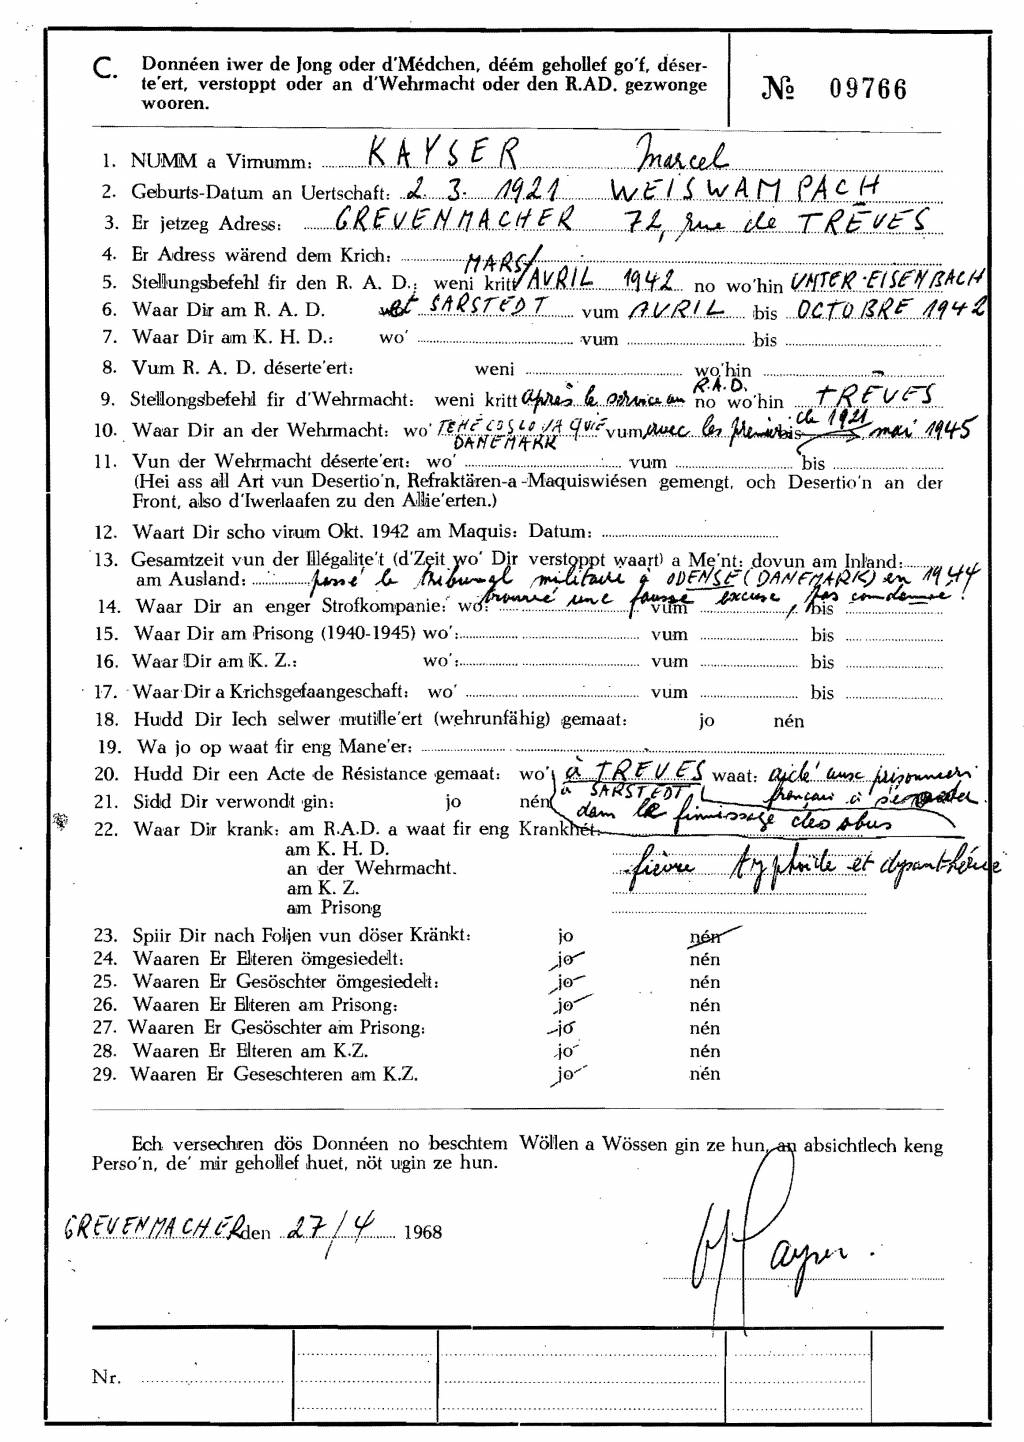 C. Donnéen iwer de Jong oder d'Médchen, déém gehollef go'f, déser-
te'ert, verstoppt oder an d'Wehrmacht oder den R.AD. gezwonge
wooren.
№ 09766
1. NUMM a Virnumm: KAYSER Marcel
2. Geburts-Datum an Uertschaft: 2. 3. 1921 WEISWAMPACH
3. Er jetzeg Adress: GREVENMACHER 72, rue de TRÈVES
4. Er Adress wärend dem Krich:
5. Stellungsbefehl fir den R. A. D.: weni kritt MARS/AVRIL 1942 no wo'hin UNTER-EISENBACH
6. Waar Dir am R. A. D. SARSTEDT vum AVRIL bis OCTOBRE 1942
7. Waar Dir am K. H. D.: wo' vum bis
8. Vum R. A. D. déserte'ert: weni wo'hin
9. Stellongsbefehl fir d'Wehrmacht: weni kritt après le service au R.A.D. no wo'hin TRÈVES
10. Waar Dir an der Wehrmacht: wo' TEHÉCOSLOVAQUIE DANEMARK vum avec les premiers de 1921 bis mai 1945
11. Vun der Wehrmacht déserte'ert: wo' vum bis
(Hei ass all Art vun Desertio'n, Refraktären-a-Maquiswiésen gemengt, och Desertio'n an der
Front, also d'Iwerlaafen zu den Allie'erten.)
12. Waart Dir scho virum Okt. 1942 am Maquis: Datum:
13. Gesamtzeit vun der Illégalite't (d'Zeit wo' Dir verstoppt waart) a Me'nt: dovun am Inland:
am Ausland: passé le tribunal militaire à ODENSE (DANEMARK) en 1944
trouvé une fausse excuse, pas condamné!
14. Waar Dir an enger Strofkompanie: wo: vum bis
15. Waar Dir am Prisong (1940-1945) wo': vum bis
16. Waar Dir am K. Z.: wo': vum bis
17. Waar Dir a Krichsgefaangeschaft: wo' vum bis
18. Hudd Dir Iech selwer mutille'ert (wehrunfähig) gemaat: jo nén
19. Wa jo op waat fir eng Mane'er:
20. Hudd Dir een Acte de Résistance gemaat: wo' à TREVES waat: aidé aux prisonniers
français à s'évader
21. Sidd Dir verwondt gin: jo nén
à SARSTEDT dans le finissage des obus
22. Waar Dir krank: am R.A.D. a waat fir eng Krankhét:
am K. H. D.
an der Wehrmacht. fièvre typhoïde et dysanthérie
am K. Z.
am Prisong
23. Spiir Dir nach Foljen vun döser Kränkt: jo nén
24. Waaren Er Elteren ömgesiedelt: jo nén
25. Waaren Er Gesöschter ömgesiedelt: jo nén
26. Waaren Er Elteren am Prisong: jo nén
27. Waaren Er Gesöschter am Prisong: jo nén
28. Waaren Er Elteren am K.Z. jo nén
29. Waaren Er Geseschteren am K.Z. jo nén
Ech versechren dös Donnéen no beschtem Wöllen a Wössen gin ze hun, an absichtlech keng
Perso'n, de' mir gehollef huet, nöt ugin ze hun.
GREVENMACHER den 27/4 1968
Kayser.
Nr.